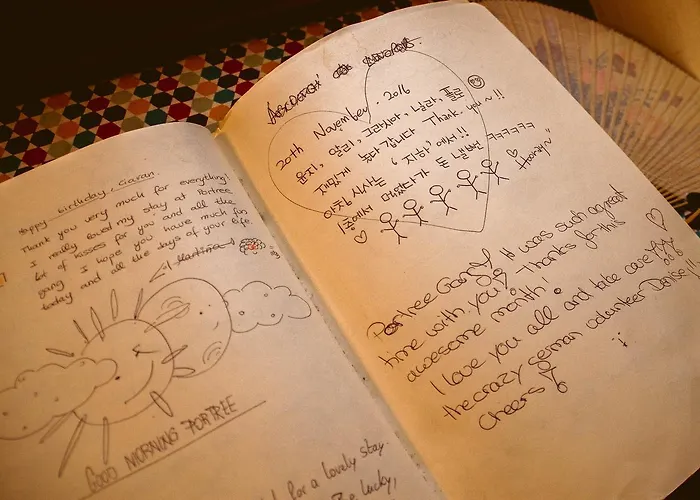 Happy birthday, Ciaran.
Thank you very much for everything!
I really loved my stay at Portree
lot of kisses for you and all the
gang. I hope you have much fun
today and all the days of your life.
Martina
GOOD MORNING PORTREE
for a lovely stay.
Be lucky,
20th November. 2016
윤지, 알리, 그라시아, 닐라, 플로
재밌게 놀다 갑니다 Thank you~!!
아침 식사는 '지하'에서!!
1층에서 먹었다가 돈 낼뻔 ㅋㅋㅋㅋㅋ
Portree Gang! It was such a great
time with you!! Thanks for this
awesome month!
I love you all and take care
the crazy german volunteer Denise!!
Cheers